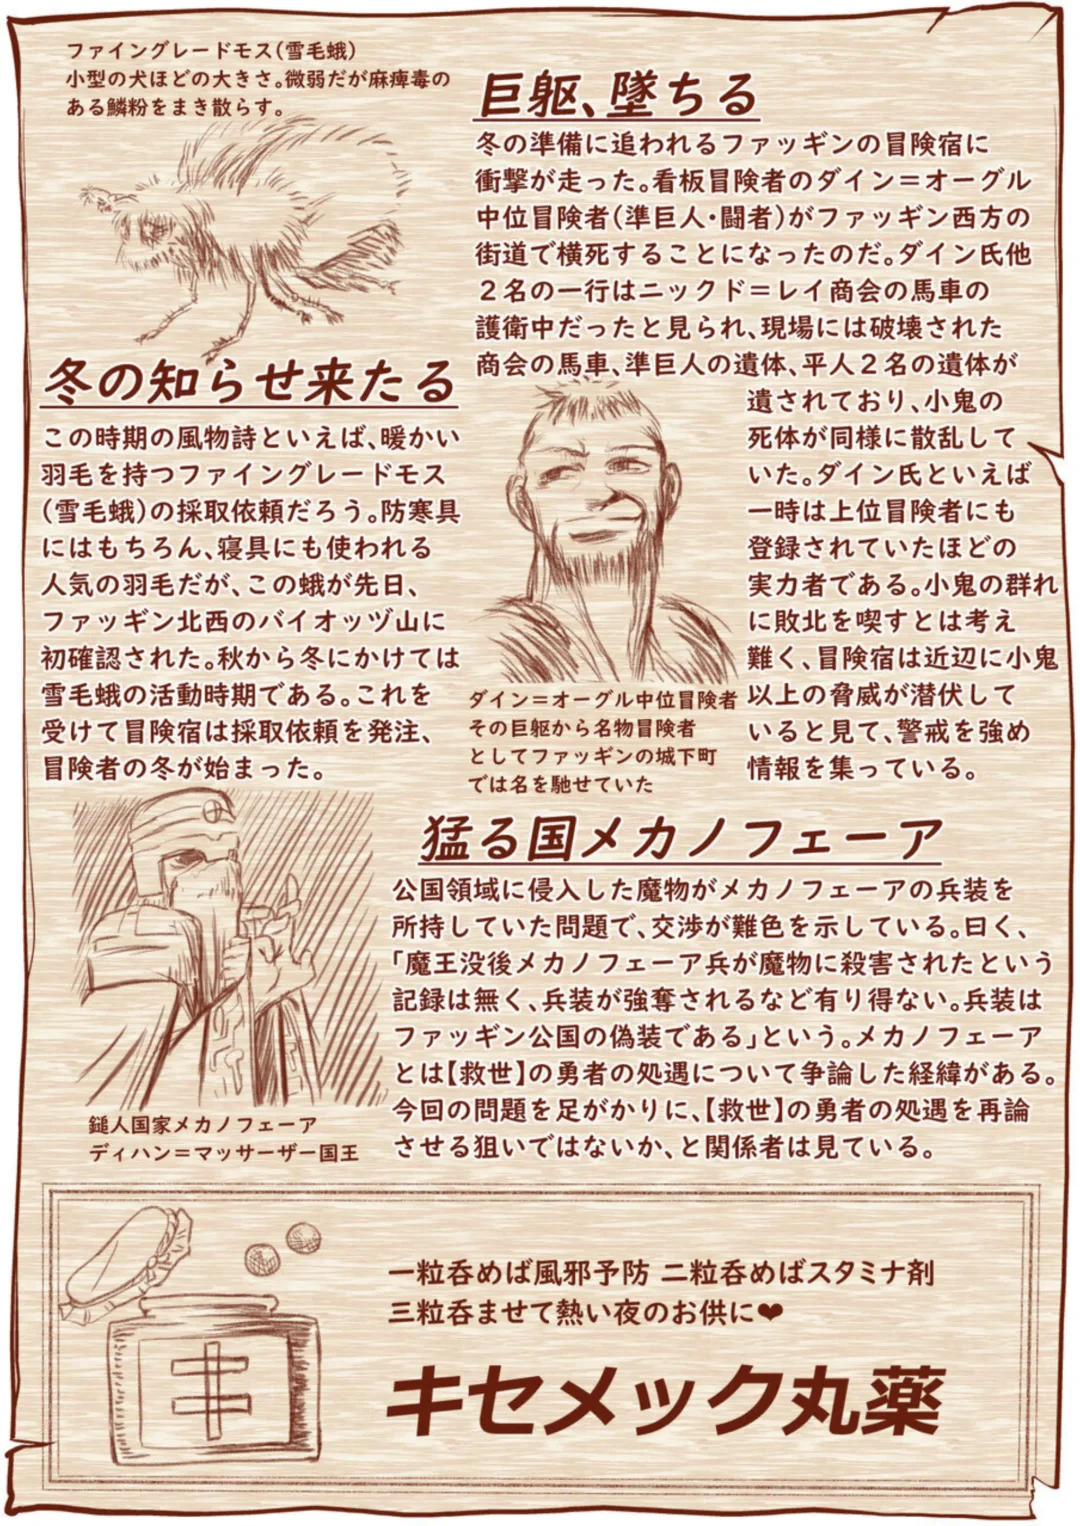 ファイングレードモス(雪毛蛾)
小型の犬ほどの大きさ。微弱だが麻痺毒の
ある鱗粉をまき散らす。
冬の知らせ来たる
この時期の風物詩といえば、暖かい
羽毛を持つファイングレードモス
(雪毛蛾)の採取依頼だろう。防寒具
にはもちろん、寝具にも使われる
人気の羽毛だが、この蛾が先日、
ファッギン北西のバイオッヅ山に
初確認された。秋から冬にかけては
雪毛蛾の活動時期である。これを
受けて冒険宿は採取依頼を発注、
冒険者の冬が始まった。
巨躯、墜ちる
冬の準備に追われるファッギンの冒険宿に
衝撃が走った。看板冒険者のダイン＝オーグル
中位冒険者(準巨人・闘者)がファッギン西方の
街道で横死することになったのだ。ダイン氏他
２名の一行はニックド＝レイ商会の馬車の
護衛中だったと見られ、現場には破壊された
商会の馬車、準巨人の遺体、平人２名の遺体が
遺されており、小鬼の
死体が同様に散乱して
いた。ダイン氏といえば
一時は上位冒険者にも
登録されていたほどの
実力者である。小鬼の群れ
に敗北を喫すとは考え
難く、冒険宿は近辺に小鬼
以上の脅威が潜伏して
いると見て、警戒を強め
情報を集っている。
ダイン＝オーグル中位冒険者
その巨躯から名物冒険者
としてファッギンの城下町
では名を馳せていた
猛る国メカノフェーア
公国領域に侵入した魔物がメカノフェーアの兵装を
所持していた問題で、交渉が難色を示している。曰く、
「魔王没後メカノフェーア兵が魔物に殺害されたという
記録は無く、兵装が強奪されるなど有り得ない。兵装は
ファッギン公国の偽装である」という。メカノフェーア
とは【救世】の勇者の処遇について争論した経緯がある。
今回の問題を足がかりに、【救世】の勇者の処遇を再論
させる狙いではないか、と関係者は見ている。
鎚人国家メカノフェーア
ディハン＝マッサーザー国王
一粒呑めば風邪予防 二粒呑めばスタミナ剤
三粒呑ませて熱い夜のお供に❤
キセメック丸薬
キ